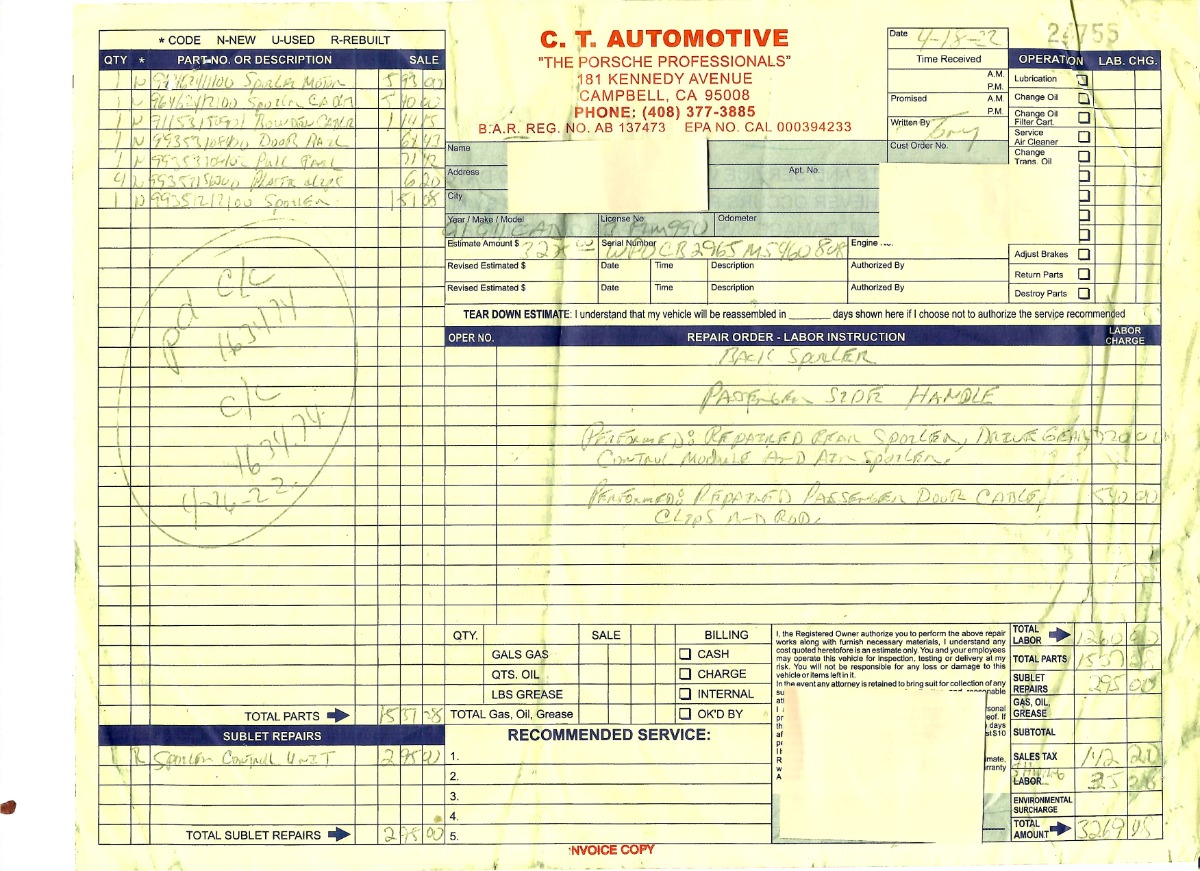 * CODE N-NEW U-USED R-REBUILT
QTY * PART NO. OR DESCRIPTION SALE
1 N Spoiler Motor 593 00
1 N Spoiler Cable 540 00
1 N Cable 114 15
1 N Door
1 N
4 N Plastic Clips 6 20
1 N Spoiler 151 08
pd C/C
163474
C/C
163474
4-26-22
TOTAL PARTS
SUBLET REPAIRS
1 R Spoiler Control Unit 295 00
TOTAL SUBLET REPAIRS 295 00
C. T. AUTOMOTIVE
"THE PORSCHE PROFESSIONALS"
181 KENNEDY AVENUE
CAMPBELL, CA 95008
PHONE: (408) 377-3885
B.A.R. REG. NO. AB 137473 EPA NO. CAL 000394233
Date 4-18-22
Time Received
A.M.
P.M.
Promised A.M.
P.M.
Written By Tony
Cust Order No.
24755
OPERATION LAB. CHG.
Lubrication
Change Oil
Change Oil
Filter Cart.
Service
Air Cleaner
Change
Trans. Oil
Adjust Brakes
Return Parts
Destroy Parts
Name
Address Apt. No.
City
Year / Make / Model License No. Odometer
Estimate Amount $ Serial Number Engine
Revised Estimated $ Date Time Description Authorized By
Revised Estimated $ Date Time Description Authorized By
TEAR DOWN ESTIMATE: I understand that my vehicle will be reassembled in _______ days shown here if I choose not to authorize the service recommended
OPER NO. REPAIR ORDER - LABOR INSTRUCTION LABOR
CHARGE
BACK SPOILER
PASSENGER SIDE HANDLE
PERFORMED: REPAIRED REAR SPOILER, DRIVE GEAR, 720 00
CONTROL MODULE AND AIR SPOILER.
PERFORMED: REPAIRED PASSENGER DOOR CABLE, 540 00
CLIPS AND ROD.
QTY. SALE BILLING
GALS GAS CASH
QTS. OIL CHARGE
LBS GREASE INTERNAL
TOTAL Gas, Oil, Grease OK'D BY
RECOMMENDED SERVICE:
1.
2.
3.
4.
5.
I, the Registered Owner authorize you to perform the above repair
works along with furnish necessary materials, I understand any
cost quoted heretofore is an estimate only. You and your employees
may operate this vehicle for inspection, testing or delivery at my
risk. You will not be responsible for any loss or damage to this
vehicle or items left in it.
In the event any attorney is retained to bring suit for collection of any
TOTAL
LABOR 1260 00
TOTAL PARTS
SUBLET
REPAIRS 295 00
GAS, OIL,
GREASE
SUBTOTAL
SALES TAX 142 20
LABOR
ENVIRONMENTAL
SURCHARGE
TOTAL
AMOUNT
INVOICE COPY